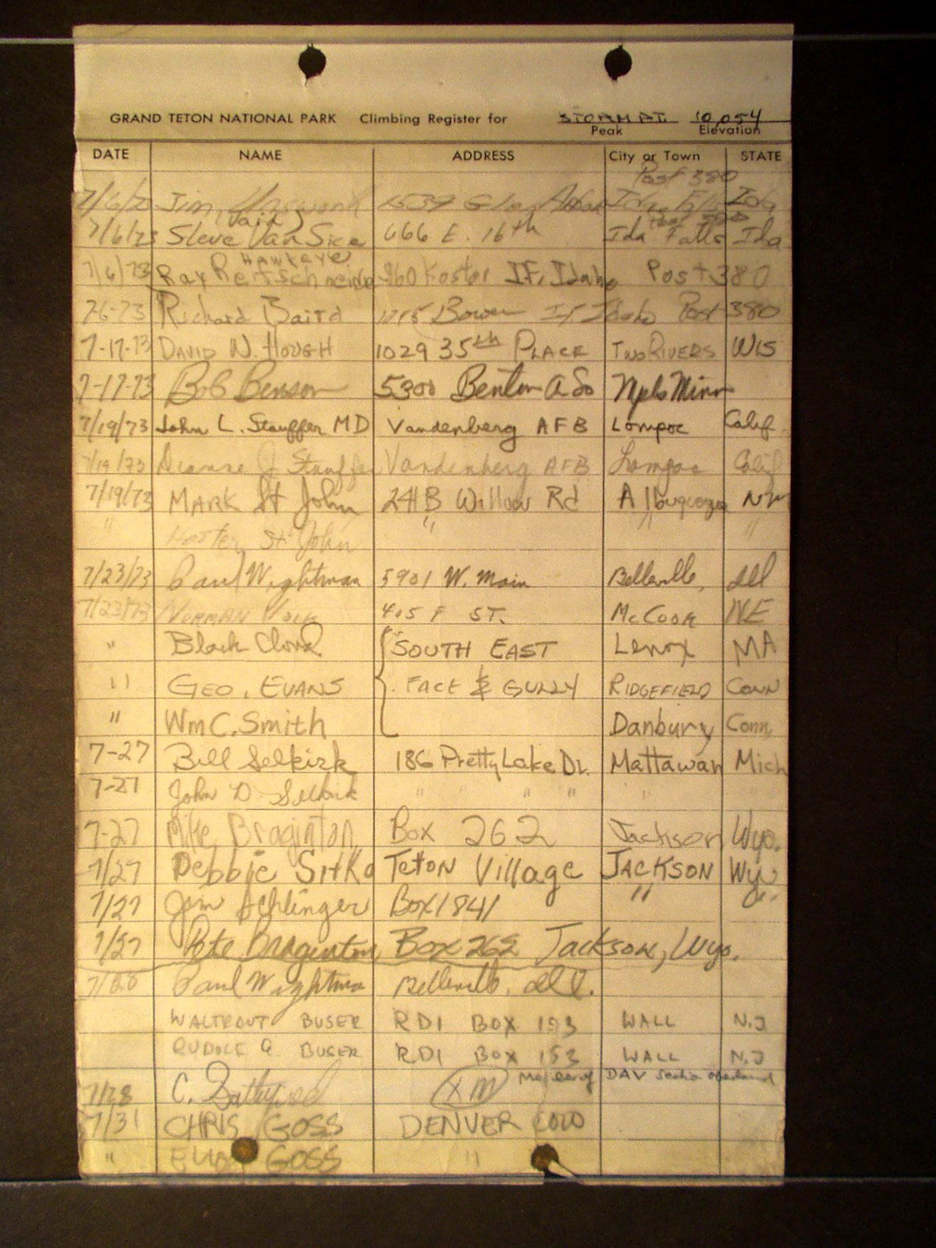 GRAND TETON NATIONAL PARK Climbing Register for STORM PT. 10,054
Peak Elevation
DATE NAME ADDRESS City or Town STATE
Post 380
7/6/73 Jim Ida Falls Ida
Post 380
7/6/73 Steve Van Sice 666 E. 16th Ida Falls Ida
Hawkeye
7/6/73 Ray Rertschneider 960 Koster IF, Idaho Post 380
7-6-73 Richard Baird Bower IF Idaho Post 380
7-17-73 DAVID N. HOUGH 1029 35th PLACE TWO RIVERS WIS
7-17-73 Bob Benson 5300 Benton A So Mpls Minn
7/19/73 John L. Stauffer MD Vandenberg AFB Lompoc Calif.
7/19/73 Dianne J Stauffer Vandenberg AFB Lompoc Calif
7/19/73 MARK St John 241B Willow Rd Albuquerque NM
" St John " " "
7/23/73 Paul Wightman 5901 W. Main Belleville, Ill
7/23/73 NORMAN 405 F ST. McCook NE
" Black Cloud { SOUTH EAST Lenox MA
" GEO. EVANS FACE & GULLY RIDGEFIELD CONN
" Wm C. Smith Danbury Conn,
7-27 Bill Selkirk 186 Pretty Lake Dr. Mattawan Mich
7-27 John D. Selkirk " " " " "
7-27 Mike Braginton Box 262 Jackson Wyo.
7/27 Debbie Sitko TETON Village JACKSON Wyo
7/27 Jim Schlinger Box 1841 " "
7/27 Pete Braginton Box 262 Jackson, Wyo.
7/28 Paul Wightman Belleville, Ill.
WALTROUT BUSER RD1 BOX 153 WALL N.J
RUDOLF G. BUSER RD1 BOX 153 WALL N.J
7/28 C. XM DAV
7/31 CHRIS GOSS DENVER COLO
" GOSS "